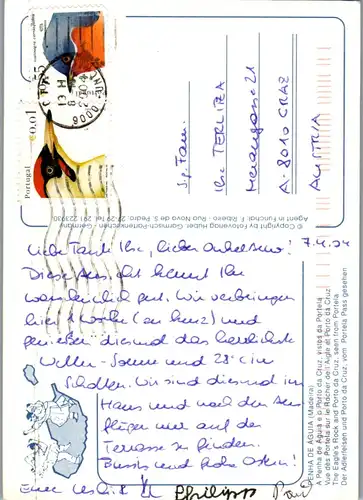 Portugal
0,01
S.g. Fam.
Ilse TERLITZA
Merangasse 21
A-8010 GRAZ
AUSTRIA
© Copyright Fotoverlag Huber · Garmisch-Partenkirchen · Germany
Agent in Funchal: F. Ribeiro · Rua Nova de S. Pedro, 27-29 Tel. 291 223930
PENHA DE AGUIA (Madeira)
A Penha de Águia e o Porto da Cruz, vistos da Portela
Vue des Portela sur le Rocher de l'Aigle et Porto da Cruz
The Eagle's Rock and Porto da Cruz, seen from Portela
Der Adlerfelsen und Porto da Cruz, vom Portela Pass gesehen
Liebe Tante Ilse, lieber Onkel 7.4.04
Diese Ansicht kennt Ihr
wahrscheinlich gut. Wir verbringen
hier 1 Woche (zu kurz) und
genießen diesmal das herrlichste
Wetter - Sonne und 23°C im
Schatten. Wir sind diesmal im
Haus und nach den Aus-
flügen nur auf der
Terrasse zu finden.
Bussis und frohe Ostern!
Philipp